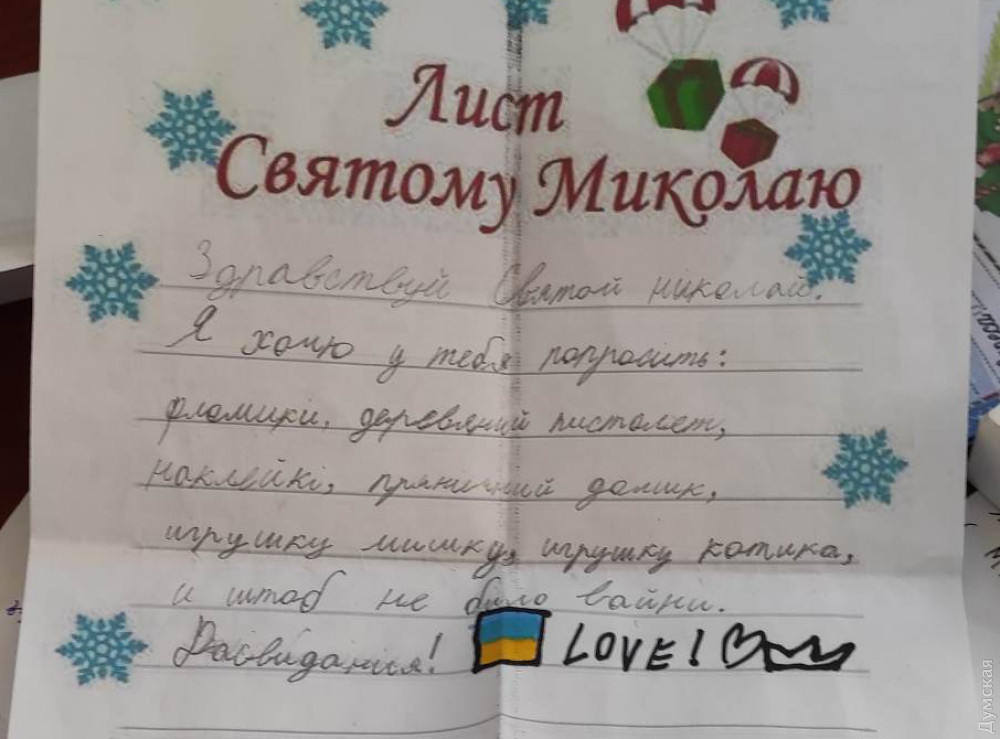 Лист
Святому Миколаю
Здравствуй Святой николай.
Я хочю у тебя попросить:
фломики, деревяний пистолет,
наклейкі, пряничний домик,
игрушку мишку, игрушку котика,
и штоб не было вайни.
Дасвидания! LOVE!
Думская